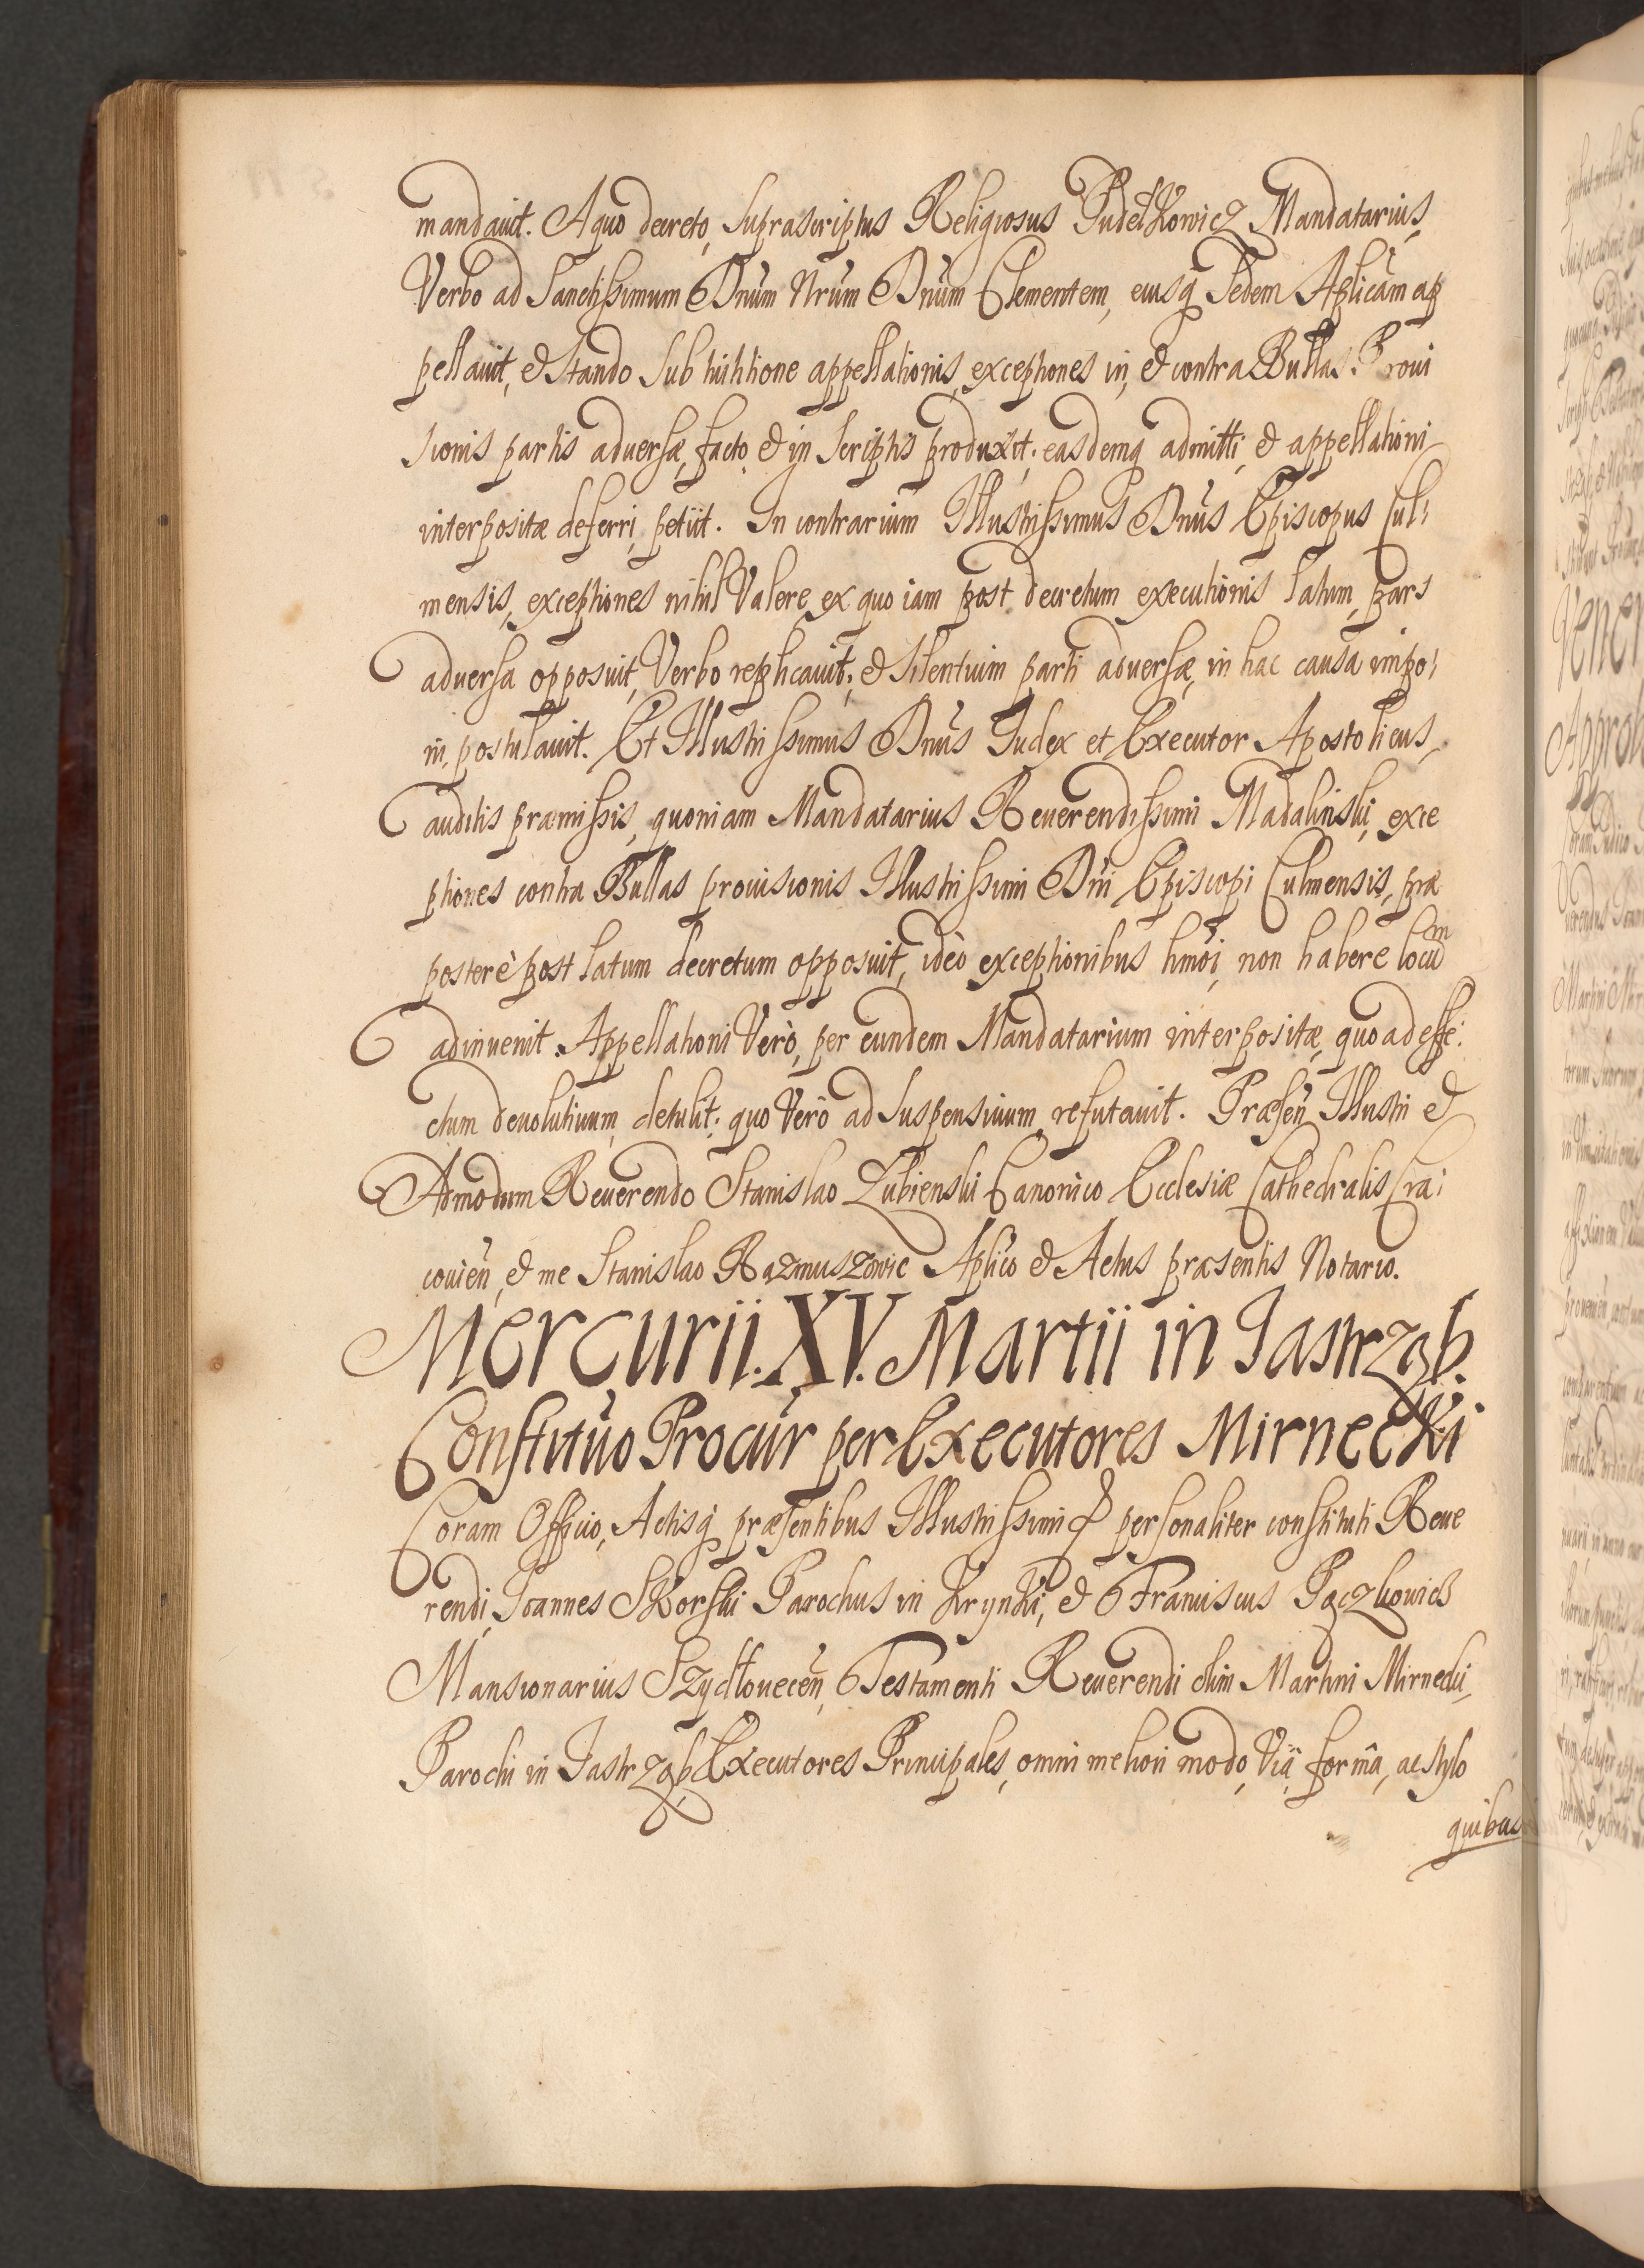 mandauit. A quo decreto, supra scriptus Religiosus Pudełkowicz Mandatarius,
Verbo ad Sanctissimum Dnum Nrum Dnum Clementem, eiusq Sedem Aplicam ap
pellauit, et stando sub tuitione appellationis, exceptiones in, et contra Bullas Proui
sionis partis aduersæ, facto et in scriptis produxit, easdemq admitti, et appellationi
interpositæ deferri, petiit. In contrarium Illustrissimus Dnus Episcopus Cul:
mensis, exceptiones nihil Valere, ex quo iam post decretum executionis latum, pars
aduersa opposuit, Verbo replicauit; et silentium parti aduersæ, in hac causa impo:
ni, postulauit. Et Illustrissimus Dnus Iudex et Executor Apostolicus,
auditis præmissis, quoniam Mandatarius Reuerendissimi Madalinski, exce
ptiones contra Bullas prouisionis Illustrissimi Dni Episcopi Culmensis, præ
posterè post latum decretum opposuit, ideò exceptionibus hmoi, non habere locum
adinuenit. Appellationi Verò, per eundem Mandatarium interpositæ, quo ad effe:
ctum deuolutiuum, detulit; quo Verò ad suspensiuum, refutauit. Præsen Illustri et
Admodum Reuerendo Stanislao Lubienski Canonico Ecclesiæ Cathedralis Cra:
couien, et me Stanislao Razmuszowic Aplico et Actus præsentis Notario.
Mercurii. XV. Martii in Iastrząb.
Constituo Procur per Executores Mirnecki
Coram Officio, Actisq præsentibus Illustrissimi & personaliter constituti Reue
rendi, Ioannes Skorski Parochus in Krynki, et Franciscus Pączkowicz
Mansionarius Szydłouecen, Testamenti Reuerendi olim Martini Mirnecki,
Parochi in Iastrząb, Executores Principales, omni meliori modo, Via, forma, ac stylo
quibus